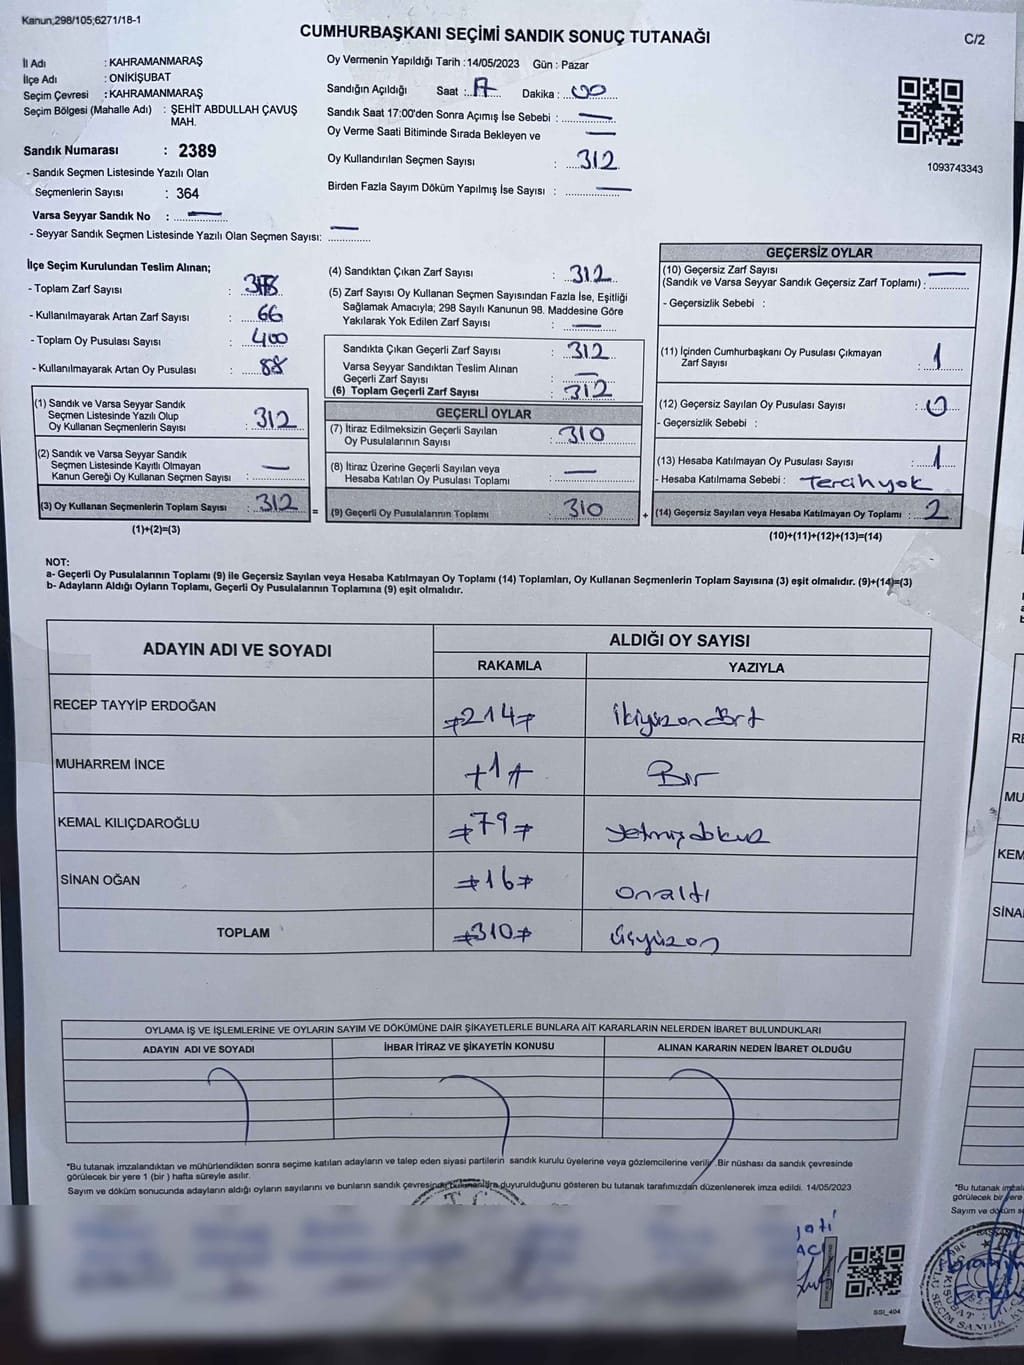 Kanun,298/105;6271/18-1
CUMHURBAŞKANI SEÇİMİ SANDIK SONUÇ TUTANAĞI
C/2
İl Adı : KAHRAMANMARAŞ
İlçe Adı : ONİKİŞUBAT
Seçim Çevresi : KAHRAMANMARAŞ
Seçim Bölgesi (Mahalle Adı) : ŞEHİT ABDULLAH ÇAVUŞ
MAH.
Sandık Numarası : 2389
- Sandık Seçmen Listesinde Yazılı Olan
Seçmenlerin Sayısı : 364
Varsa Seyyar Sandık No : —
- Seyyar Sandık Seçmen Listesinde Yazılı Olan Seçmen Sayısı: —
Oy Vermenin Yapıldığı Tarih :14/05/2023 Gün : Pazar
Sandığın Açıldığı Saat : 17 Dakika : 00
Sandık Saat 17:00'den Sonra Açımış İse Sebebi : —
Oy Verme Saati Bitiminde Sırada Bekleyen ve —
Oy Kullandırılan Seçmen Sayısı : 312
Birden Fazla Sayım Döküm Yapılmış İse Sayısı : —
1093743343
İlçe Seçim Kurulundan Teslim Alınan;
- Toplam Zarf Sayısı :
- Kullanılmayarak Artan Zarf Sayısı : 66
- Toplam Oy Pusulası Sayısı : 400
- Kullanılmayarak Artan Oy Pusulası : 88
(1) Sandık ve Varsa Seyyar Sandık
Seçmen Listesinde Yazılı Olup
Oy Kullanan Seçmenlerin Sayısı : 312
(2) Sandık ve Varsa Seyyar Sandık
Seçmen Listesinde Kayıtlı Olmayan
Kanun Gereği Oy Kullanan Seçmen Sayısı : —
(3) Oy Kullanan Seçmenlerin Toplam Sayısı : 312 =
(1)+(2)=(3)
(4) Sandıktan Çıkan Zarf Sayısı : 312
(5) Zarf Sayısı Oy Kullanan Seçmen Sayısından Fazla İse, Eşitliği
Sağlamak Amacıyla; 298 Sayılı Kanunun 98. Maddesine Göre
Yakılarak Yok Edilen Zarf Sayısı : —
Sandıkta Çıkan Geçerli Zarf Sayısı : 312
Varsa Seyyar Sandıktan Teslim Alınan
Geçerli Zarf Sayısı : —
(6) Toplam Geçerli Zarf Sayısı : 312
GEÇERLİ OYLAR
(7) İtiraz Edilmeksizin Geçerli Sayılan
Oy Pusulalarının Sayısı : 310
(8) İtiraz Üzerine Geçerli Sayılan veya
Hesaba Katılan Oy Pusulası Toplamı : —
(9) Geçerli Oy Pusulalarının Toplamı : 310 +
GEÇERSİZ OYLAR
(10) Geçersiz Zarf Sayısı
(Sandık ve Varsa Seyyar Sandık Geçersiz Zarf Toplamı) : —
- Geçersizlik Sebebi :
(11) İçinden Cumhurbaşkanı Oy Pusulası Çıkmayan
Zarf Sayısı : 1
(12) Geçersiz Sayılan Oy Pusulası Sayısı : 0
- Geçersizlik Sebebi :
(13) Hesaba Katılmayan Oy Pusulası Sayısı : 1
- Hesaba Katılmama Sebebi : Tercih yok
(14) Geçersiz Sayılan veya Hesaba Katılmayan Oy Toplamı : 2
(10)+(11)+(12)+(13)=(14)
NOT:
a- Geçerli Oy Pusulalarının Toplamı (9) ile Geçersiz Sayılan veya Hesaba Katılmayan Oy Toplamı (14) Toplamları, Oy Kullanan Seçmenlerin Toplam Sayısına (3) eşit olmalıdır. (9)+(14)=(3)
b- Adayların Aldığı Oyların Toplamı, Geçerli Oy Pusulalarının Toplamına (9) eşit olmalıdır.
ADAYIN ADI VE SOYADI
ALDIĞI OY SAYISI
RAKAMLA YAZIYLA
RECEP TAYYİP ERDOĞAN 214 ikiyüzondört
MUHARREM İNCE 1 Bir
KEMAL KILIÇDAROĞLU 79 yetmişdokuz
SİNAN OĞAN 16 onaltı
TOPLAM 310 üçyüzon
OYLAMA İŞ VE İŞLEMLERİNE VE OYLARIN SAYIM VE DÖKÜMÜNE DAİR ŞİKAYETLERLE BUNLARA AİT KARARLARIN NELERDEN İBARET BULUNDUKLARI
ADAYIN ADI VE SOYADI İHBAR İTİRAZ VE ŞİKAYETİN KONUSU ALINAN KARARIN NEDEN İBARET OLDUĞU
*Bu tutanak imzalandıktan ve mühürlendikten sonra seçime katılan adayların ve talep eden siyasi partilerin sandık kurulu üyelerine veya gözlemcilerine verilir. Bir nüshası da sandık çevresinde
görülecek bir yere 1 (bir ) hafta süreyle asılır.
Sayım ve döküm sonucunda adayların aldığı oyların sayılarını ve bunların sandık çevresinde duyurulduğunu gösteren bu tutanak tarafımızdan düzenlenerek imza edildi. 14/05/2023
T.C.
SSİ_404
RE
MU
KEM
SİNA
*Bu tutanak imzala
görülecek bir yere
Sayım ve döküm s